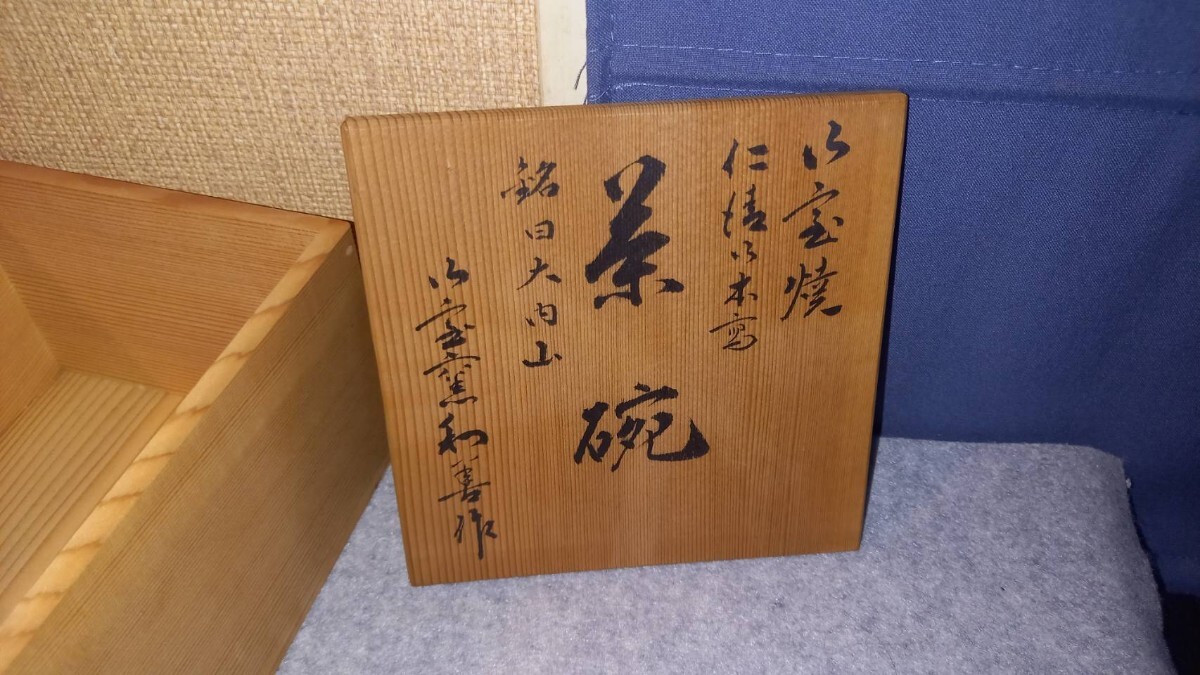 御室焼
仁清御本写
茶碗
銘曰大内山
御室窯和善作